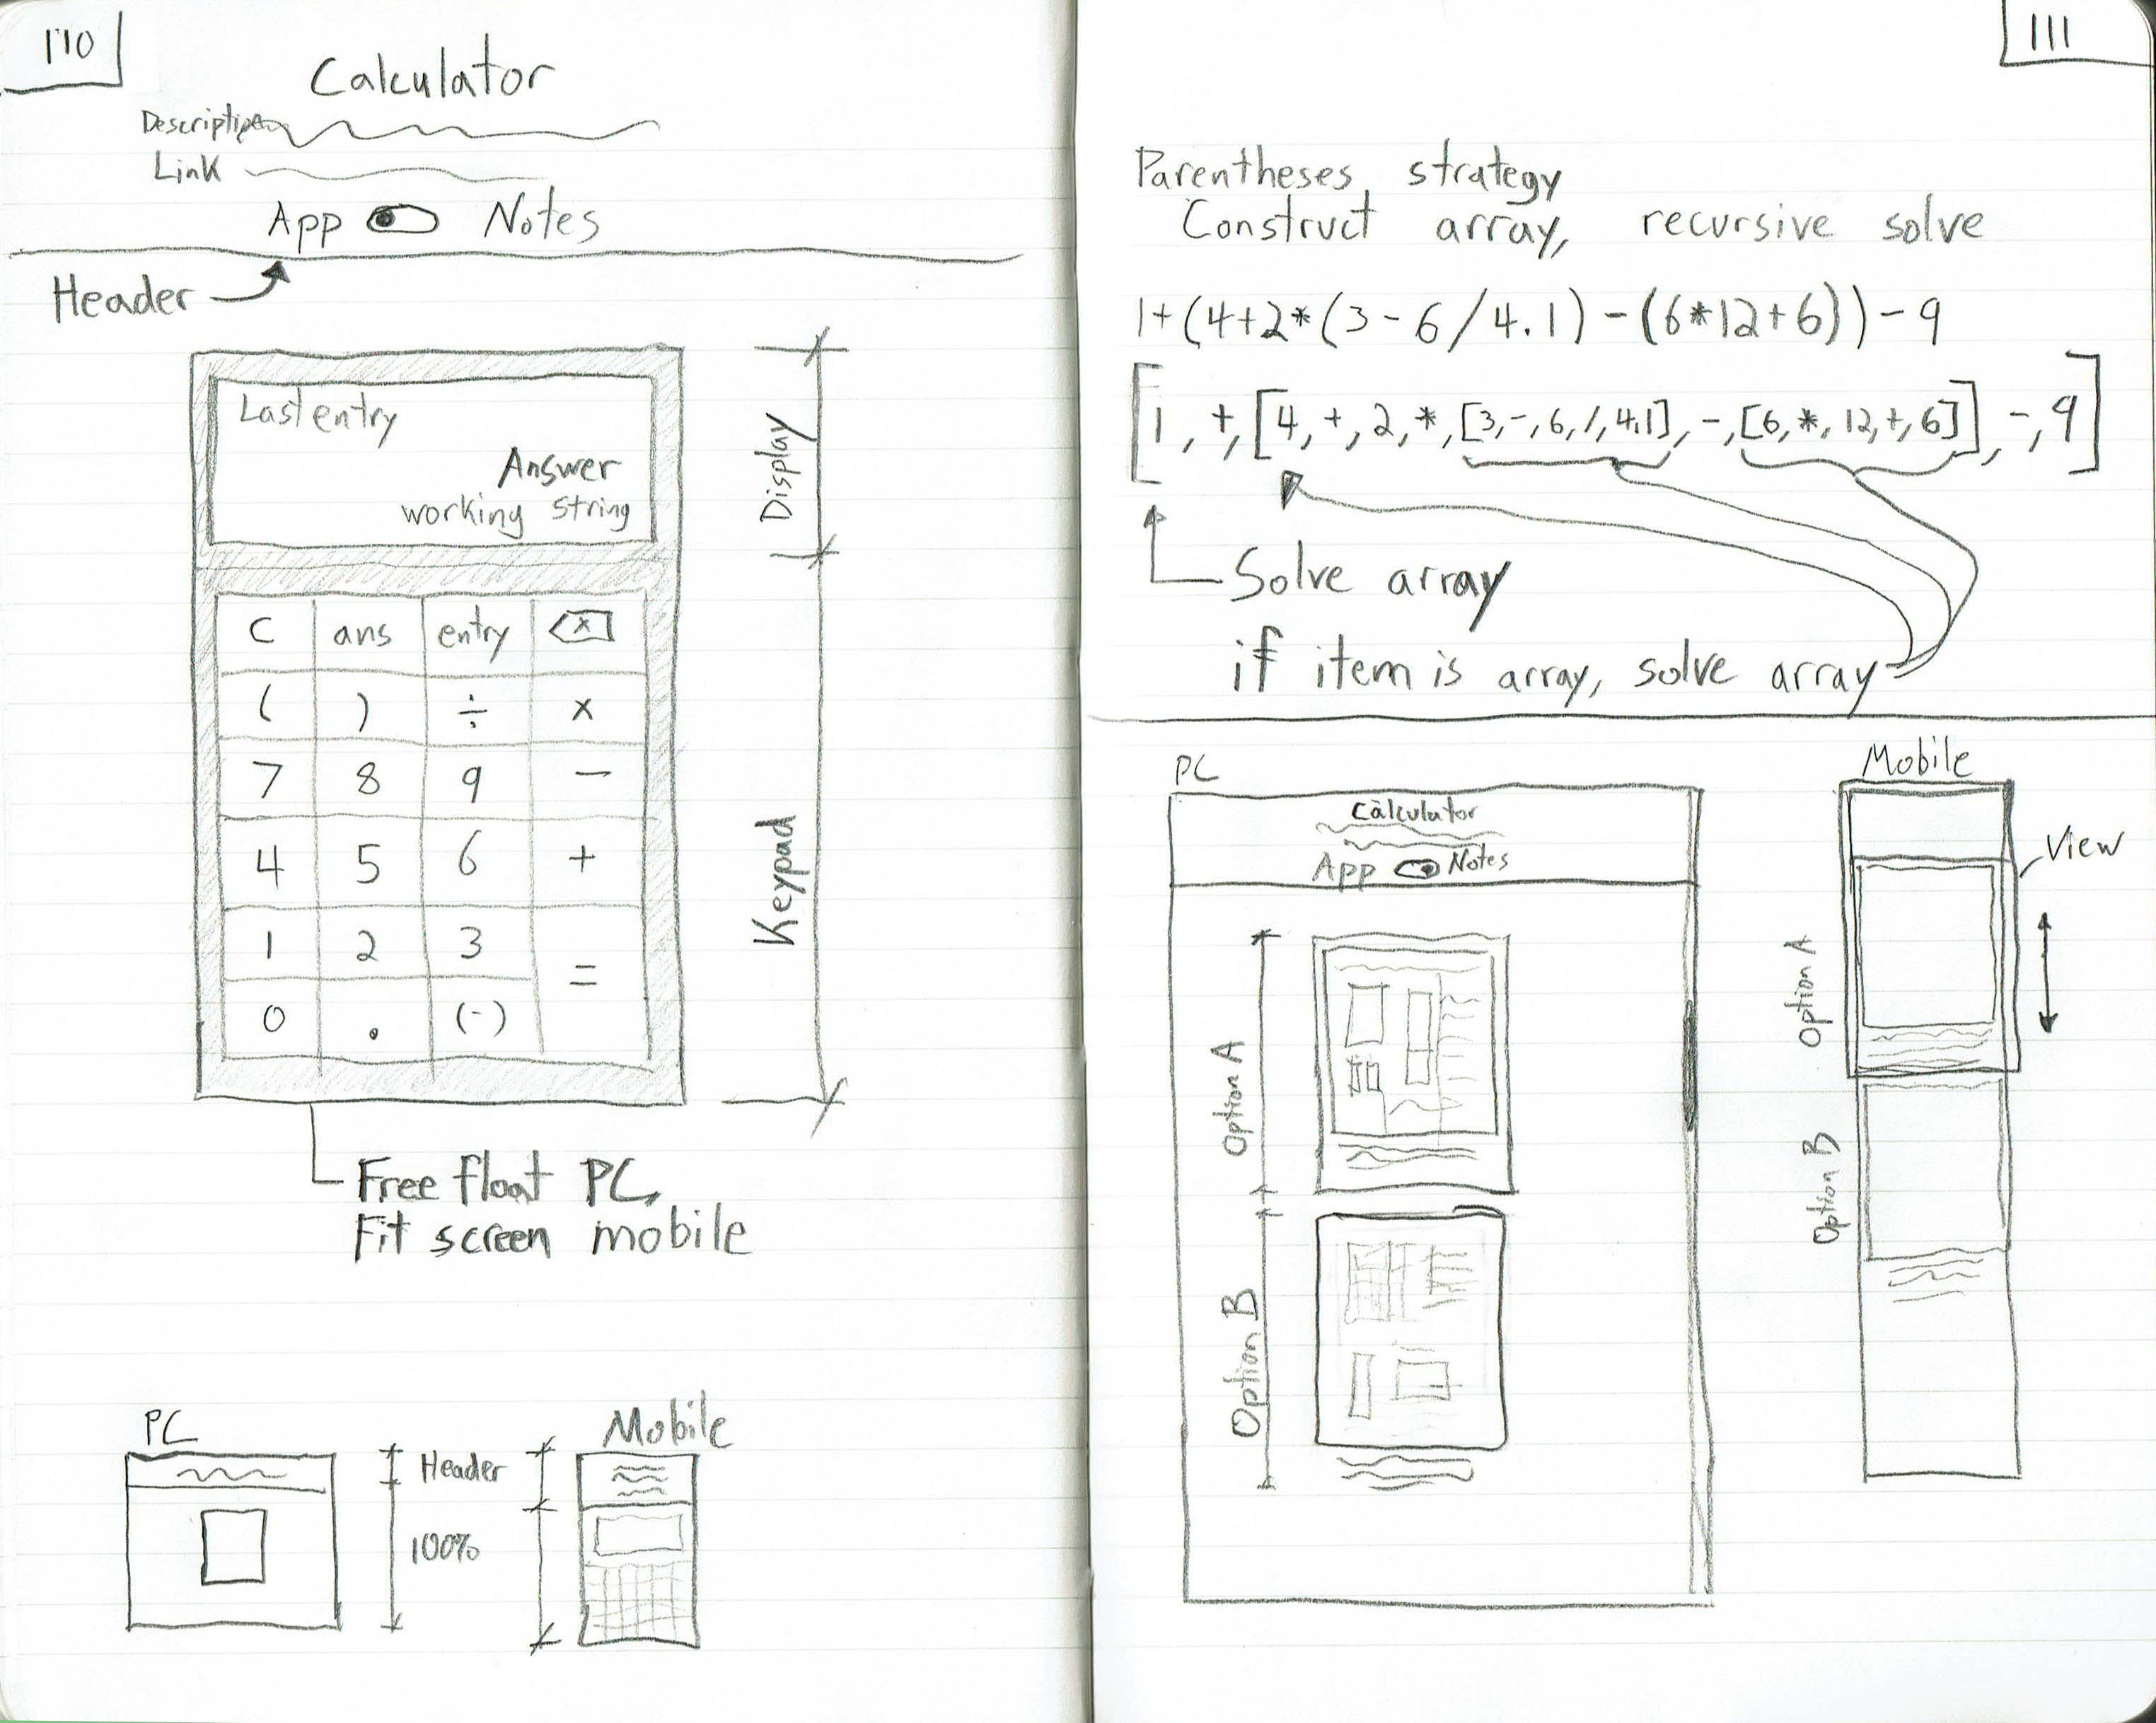 110
Calculator
Description
Link
App Notes
Header
Last entry
Answer
working string
Display
C ans entry x
( ) ÷ x
7 8 9 −
4 5 6 +
1 2 3 =
0 . (-)
Keypad
Free float PC,
Fit screen mobile
PC
Header
100%
Mobile
111
Parentheses, strategy
Construct array, recursive solve
1+(4+2*(3-6/4.1)-(6*12+6))-9
[1,+,[4,+,2,*,[3,-,6,/,4.1],-,[6,*,12,+,6]],-,9]
Solve array
if item is array, solve array
PC
Calculator
App Notes
Option A
Option B
Mobile
View
Option A
Option B